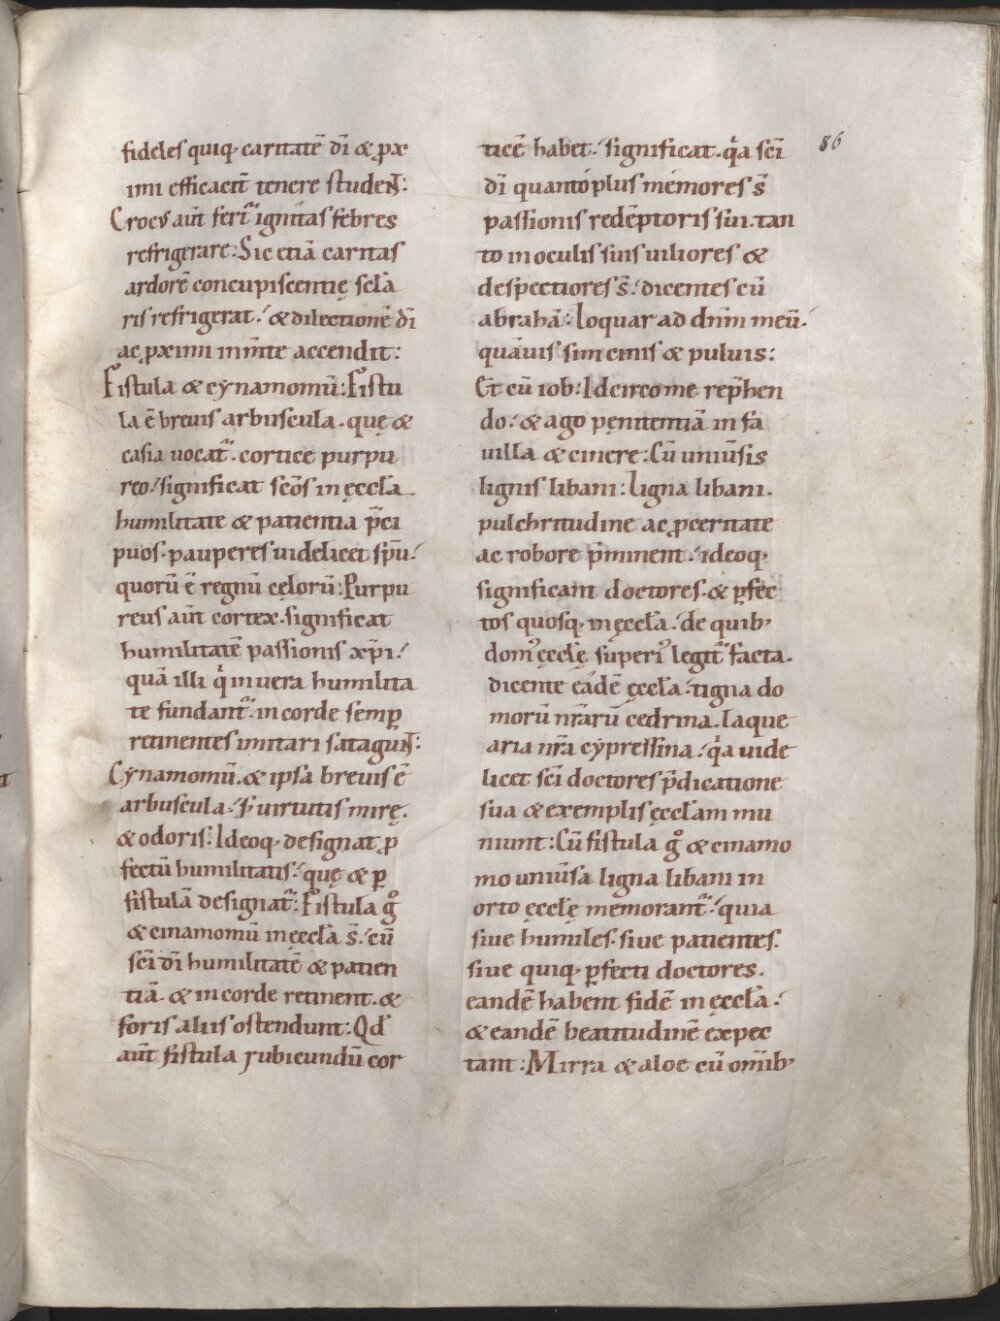 fideles quiq; caritatē dī & ꝓx
imi efficacit̄ tenere studeN̄T:
Crocus aūt ferᵗ ignitas febres
refrigerare: Sic etiā caritas
ardorē concupiscentię scła
ris refrigerat. & dilectionē dī
ac ꝓximi in m̄te accendit:
Fistula & cynamomū: Fistu
la ē brevis arbuscula. quę &
casia vocat᷑. cortice purpu
reo. significat scōs in ęccła
humilitate & patientia p̄ci
puos. pauperes videlicet sp̄u.
quorū ē regnū cęlorū: Purpu
reus aūt cortex. significat
humilitatē passionis xp̄i.
quā illi q̇ in vera humilita
te fundant᷑. in corde semꝑ
retinentes imitari satagunT:
Cynamomū. & ipsa brevis ē
arbuscula. s; virtutis mirę.
& odoris: Ideoq; designat ꝑ
fectū humilitatis. quę & ꝑ
fistulā designat᷑: Fistula gͦ
& cinamomū in ęccła s̄. cū
scī dī humilitatē & patien
tiā. & in corde retinent. &
foris aliis ostendunt: Qđ
aūt fistula rubicundū cor
86
ticē habet. significat. qͥa scī
dī quanto plus memores s̄
passionis redēptoris sui. tan
to in oculis suis viliores &
despectiores s̄. dicentes cū
abrahā: loquar ad dn̄m meū.
quāvis sim cinis & pulvis:
Et cū iob: Idcirco me rep̄hen
do. & ago pęnitentiā in fa
villa & cinere: Cū univ̄sis
lignis libani: Ligna libani.
pulchritudine ac ꝓceritate
ac robore p̄minent. ideoq;
significant doctores. & ꝑfec
tos quosq; in ęccła. de quib;
domꝰ ęccłę superiꝰ legit᷑ facta.
dicente eādē ęccła. tigna do
morū nr̄arū cedrina. laque
aria nr̄a cypressina. qͥa vide
licet scī doctores p̄dicatione
sua & exemplis ęccłam mu
niunt: Cū fistula gͦ & cinamo
mo univ̄sa ligna libani in
orto ęccłę memorant᷑. quia
sive humiles. sive patientes.
sive quiq; ꝑfecti doctores.
eandē habent fidē in ęccła.
& eandē beatitudinē expec
tant: Mirra & aloe cū om̄ib;